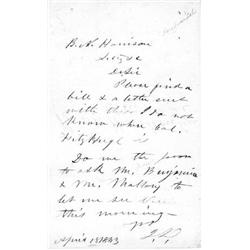 B. N. Harrison
Secy &c
D Sir
Please find a
bill & a letter sent
with this I do not
know where Col.
Fitzhugh is
Do me the favor
to ask Mr. Benjamin
& Mr. Mallory to
let me see
this morning
April 13 1863